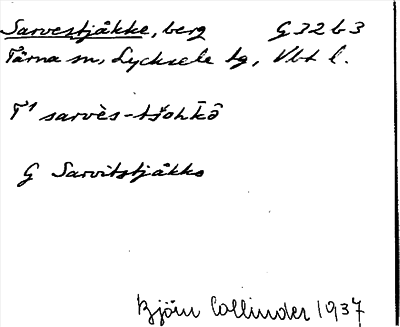 Sarvestjåkke, berg G32 b3
Tärna sn, Lycksele lg, Vbt l.
T¹ sarvès-
G Sarvitstjåkko
Björn Collinder 1937